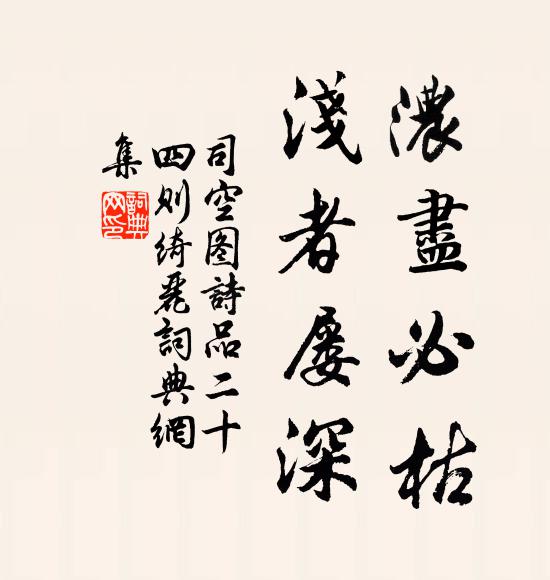 濃盡必枯
淺者屡深
司空图詩品二十
四则绮麗詞典網
集
詞典網印